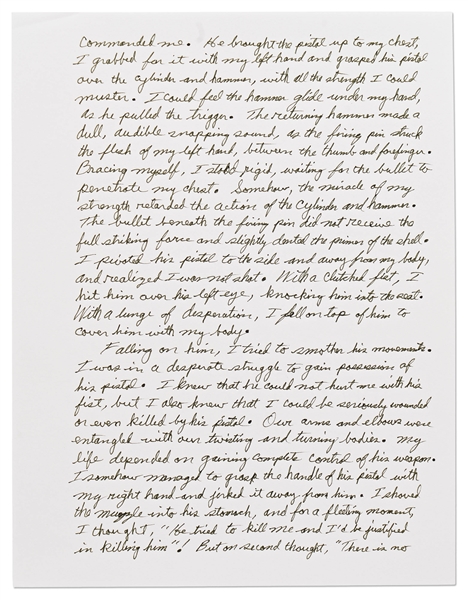 Commanded me. He brought the pistol up to my chest,
I grabbed for it with my left hand and grasped his pistol
over the cylinder and hammer, with all the strength I could
muster. I could feel the hammer glide under my hand,
as he pulled the trigger. The returning hammer made a
dull, audible snapping sound, as the firing pin struck
the flesh of my left hand, between the thumb and forefinger.
Bracing myself, I stood rigid, waiting for the bullet to
penetrate my chest. Somehow, the miracle of my
strength retarded the action of the cylinder and hammer.
The bullet beneath the firing pin did not receive the
full striking force and slightly dented the primer of the shell.
I pivoted his pistol to the side and away from my body,
and realized I was not shot. With a clitched fist, I
hit him over his left eye, knocking him into the seat.
With a lunge of desperation, I fell on top of him to
cover him with my body.
Falling on him, I tried to smother his movements.
I was in a desperate struggle to gain possession of
his pistol. I knew that he could not hurt me with his
fist, but I also knew that I could be seriously wounded
or even killed by his pistol. Our arms and elbows were
entangled with our twisting and turning bodies. My
life depended on gaining complete control of his weapon.
I somehow managed to grasp the handle of his pistol with
my right hand and jerked it away from him. I shoved
the muzzle into his stomach, and for a fleeting moment,
I thought, "He tried to kill me and I'd be justified
in killing him"! But on second thought, "There is no